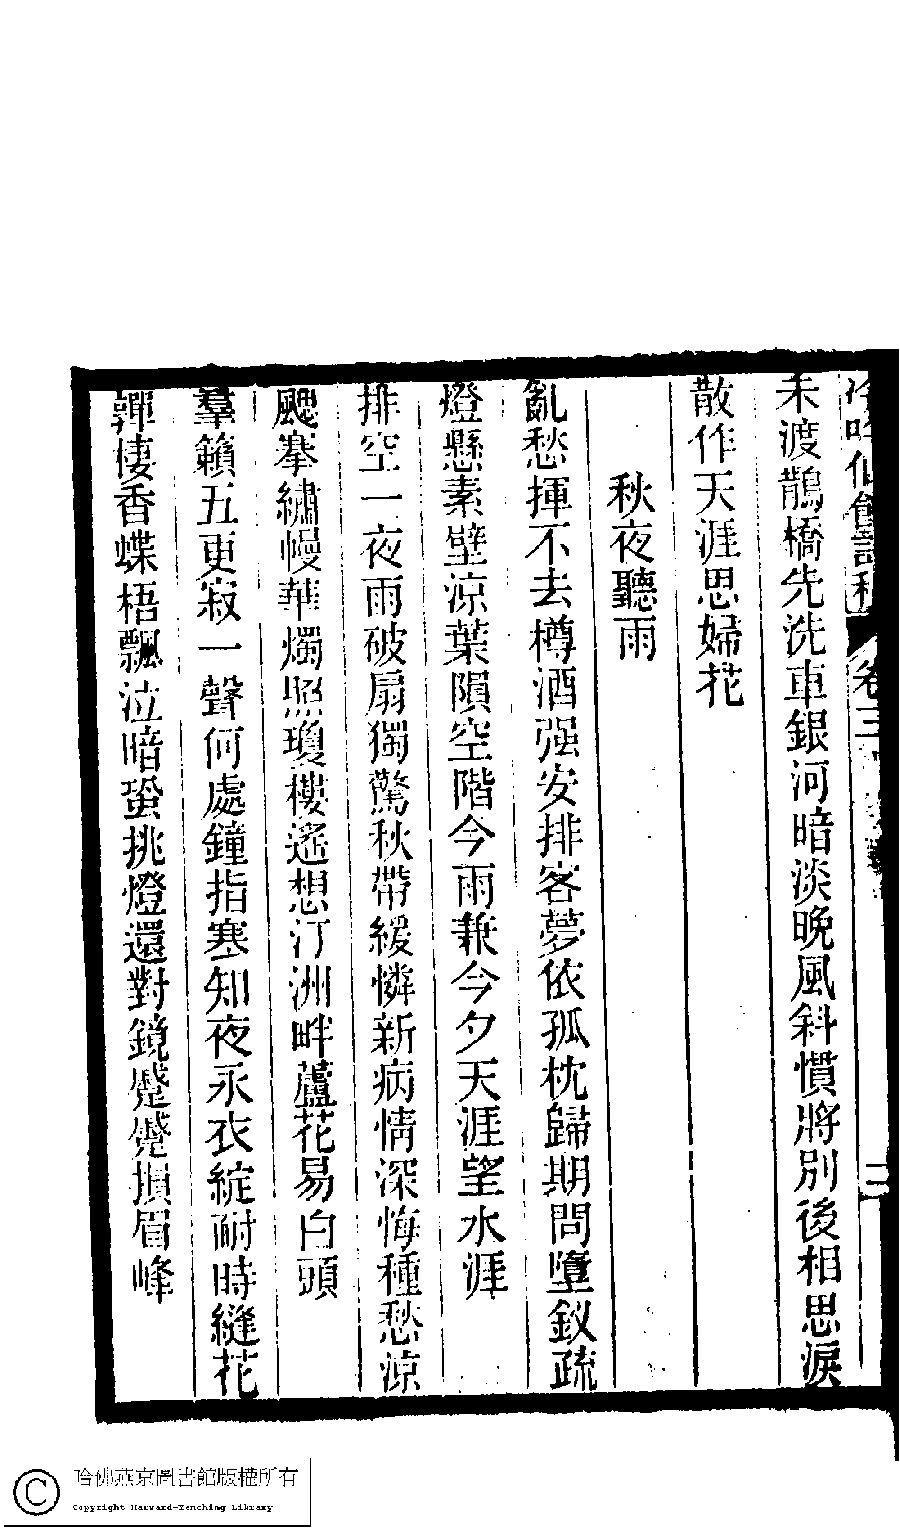 冷吟仙館詩稿 卷三 二
未渡鵲橋先洗車銀河暗淡晚風斜慣將別後相思淚
散作天涯思婦花
秋夜聽雨
亂愁揮不去樽酒强安排客夢依孤枕歸期問墮釵疏
燈懸素壁涼葉隕空階今雨兼今夕天涯望水涯
排空一夜雨破扇獨驚秋帶緩憐新病情深悔種愁涼
颸搴繡幔華燭照瓊樓遙想汀洲畔蘆花易白頭
羣籟五更寂一聲何處鐘指寒知夜永衣綻耐時縫花
嚲棲香蝶梧飄泣暗蛩挑燈還對鏡蹙蹙損眉峰
哈佛燕京圖書館版權所有
Copyright Harvard-Yenching Library